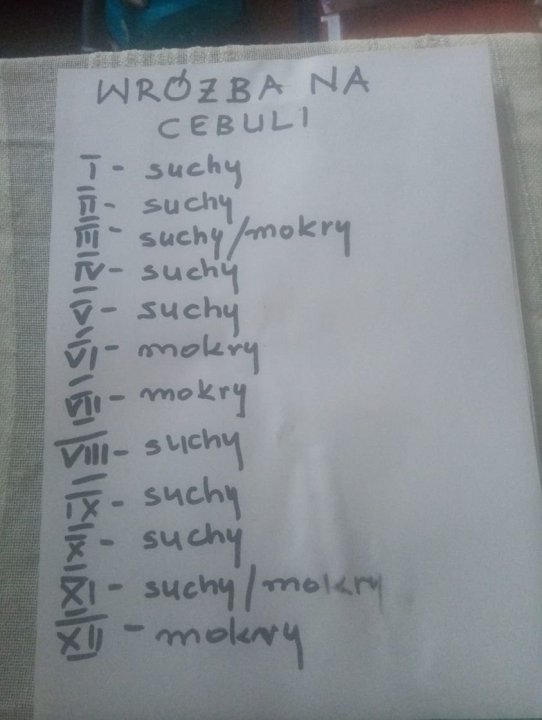 WRÓŻBA NA
CEBULI
I - suchy
II - suchy
III - suchy/mokry
IV - suchy
V - suchy
VI - mokry
VII - mokry
VIII - suchy
IX - suchy
X - suchy
XI - suchy/mokry
XII - mokry